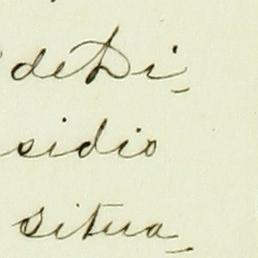 de Di-
sidio
situa-